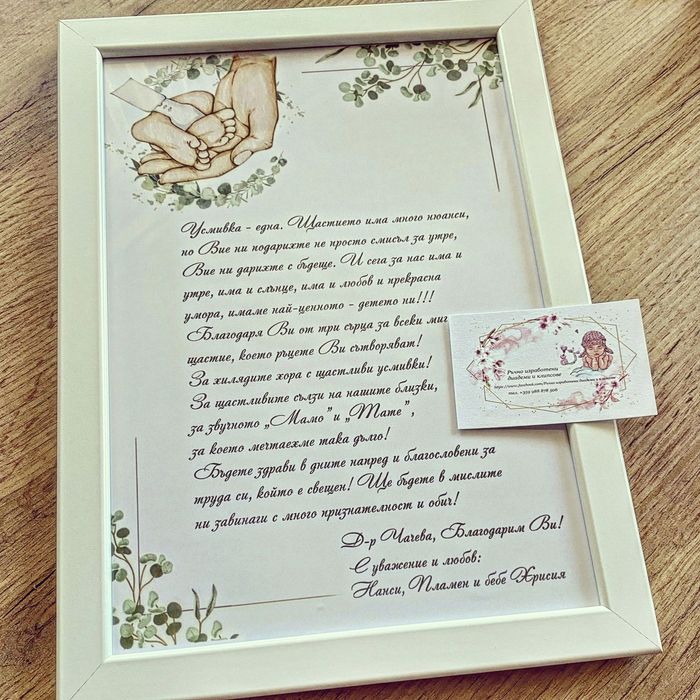 Усмивка - една. Щастието има много нюанси,
но Вие ни подарихте не просто смисъл за утре,
Вие ни дарихте с бъдеще. И сега за нас има и
утре, има и слънце, има и любов и прекрасна
умора, имаме най-ценното - детето ни!!!
Благодаря Ви от три сърца за всеки миг
щастие, което ръцете Ви сътворяват!
За хилядите хора с щастливи усмивки!
За щастливите сълзи на нашите близки,
за звучното „Мамо" и „Тате",
за което мечтаехме така дълго!
Бъдете здрави в дните напред и благословени за
труда си, който е свещен! Ще бъдете в мислите
ни завинаги с много признателност и обич!
Д-р Чачева, Благодарим Ви!
С уважение и любов:
Нанси, Пламен и бебе Хрисия
Ръчно изработени
диадеми и клипсове
https://www.facebook.com/Ръчно изработени диадеми и
тел. +359 988 878 506